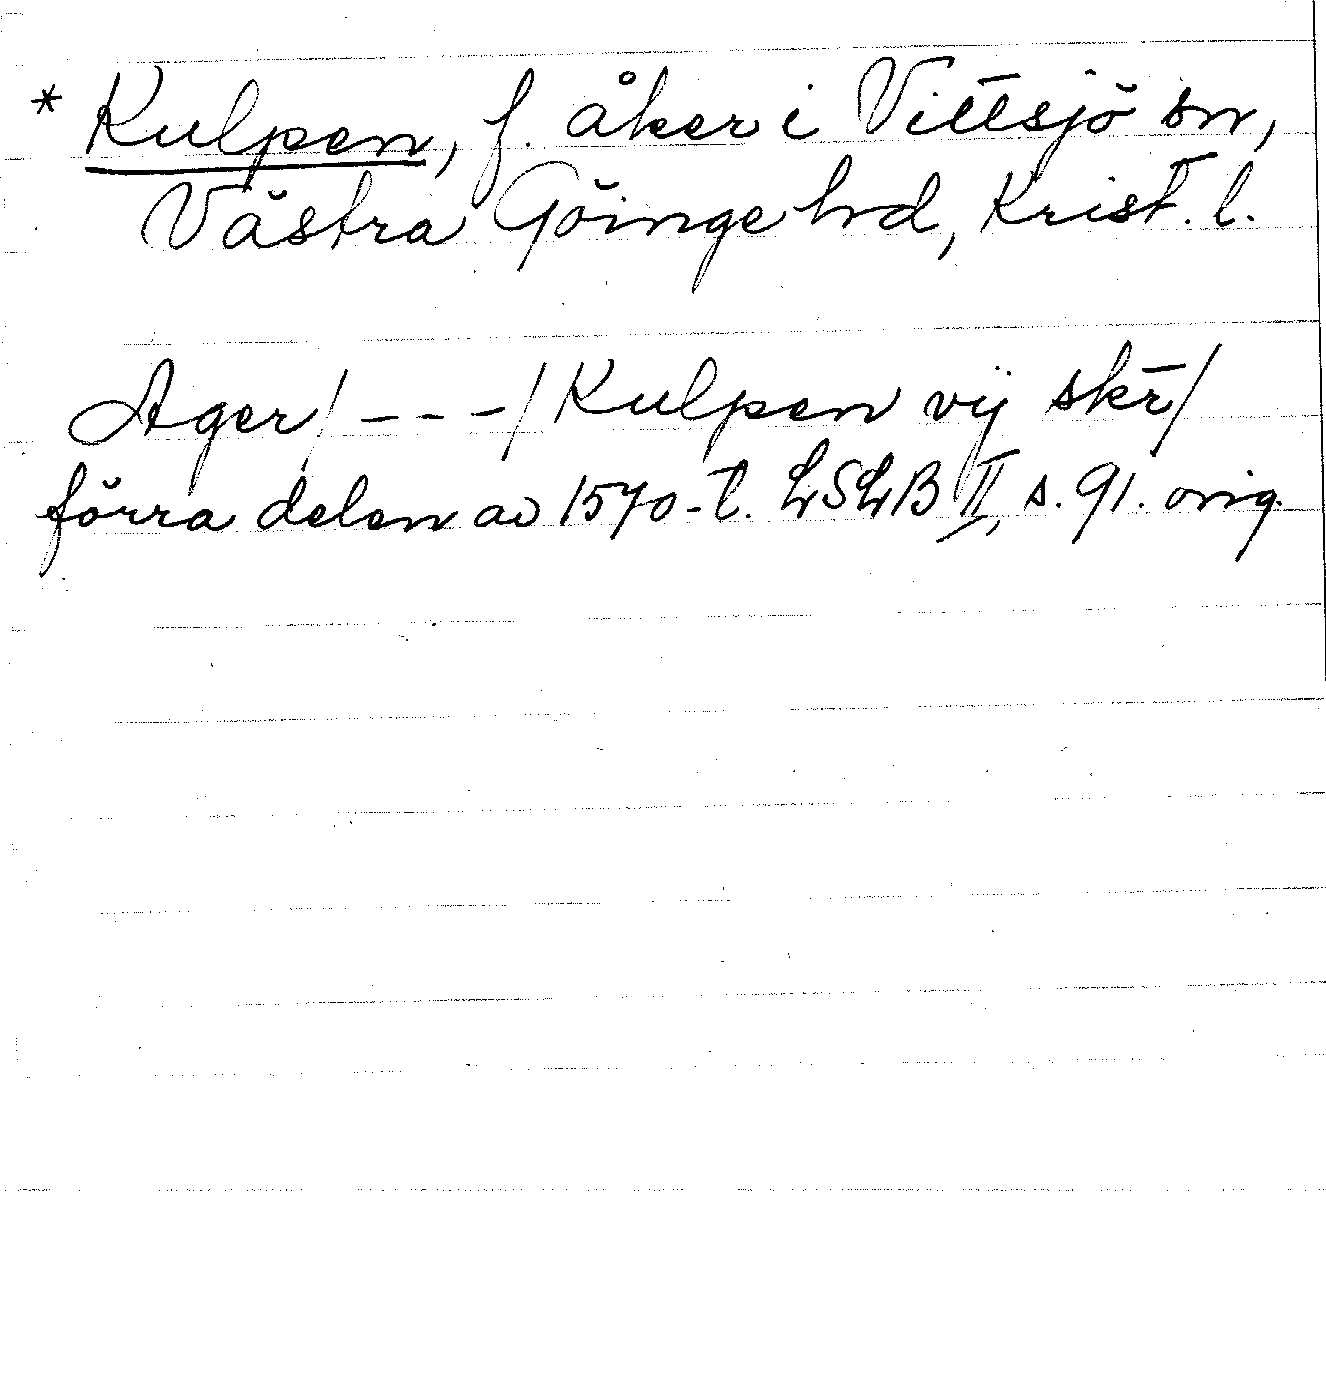 * Kulpen, f. åker i Vittsjö sn,
Västra Göinge hd, Krist. l.
Ager/ - - -/ Kulpen vij skr̄/
förra delen av 1570-t. LSLB II, s. 91. orig.